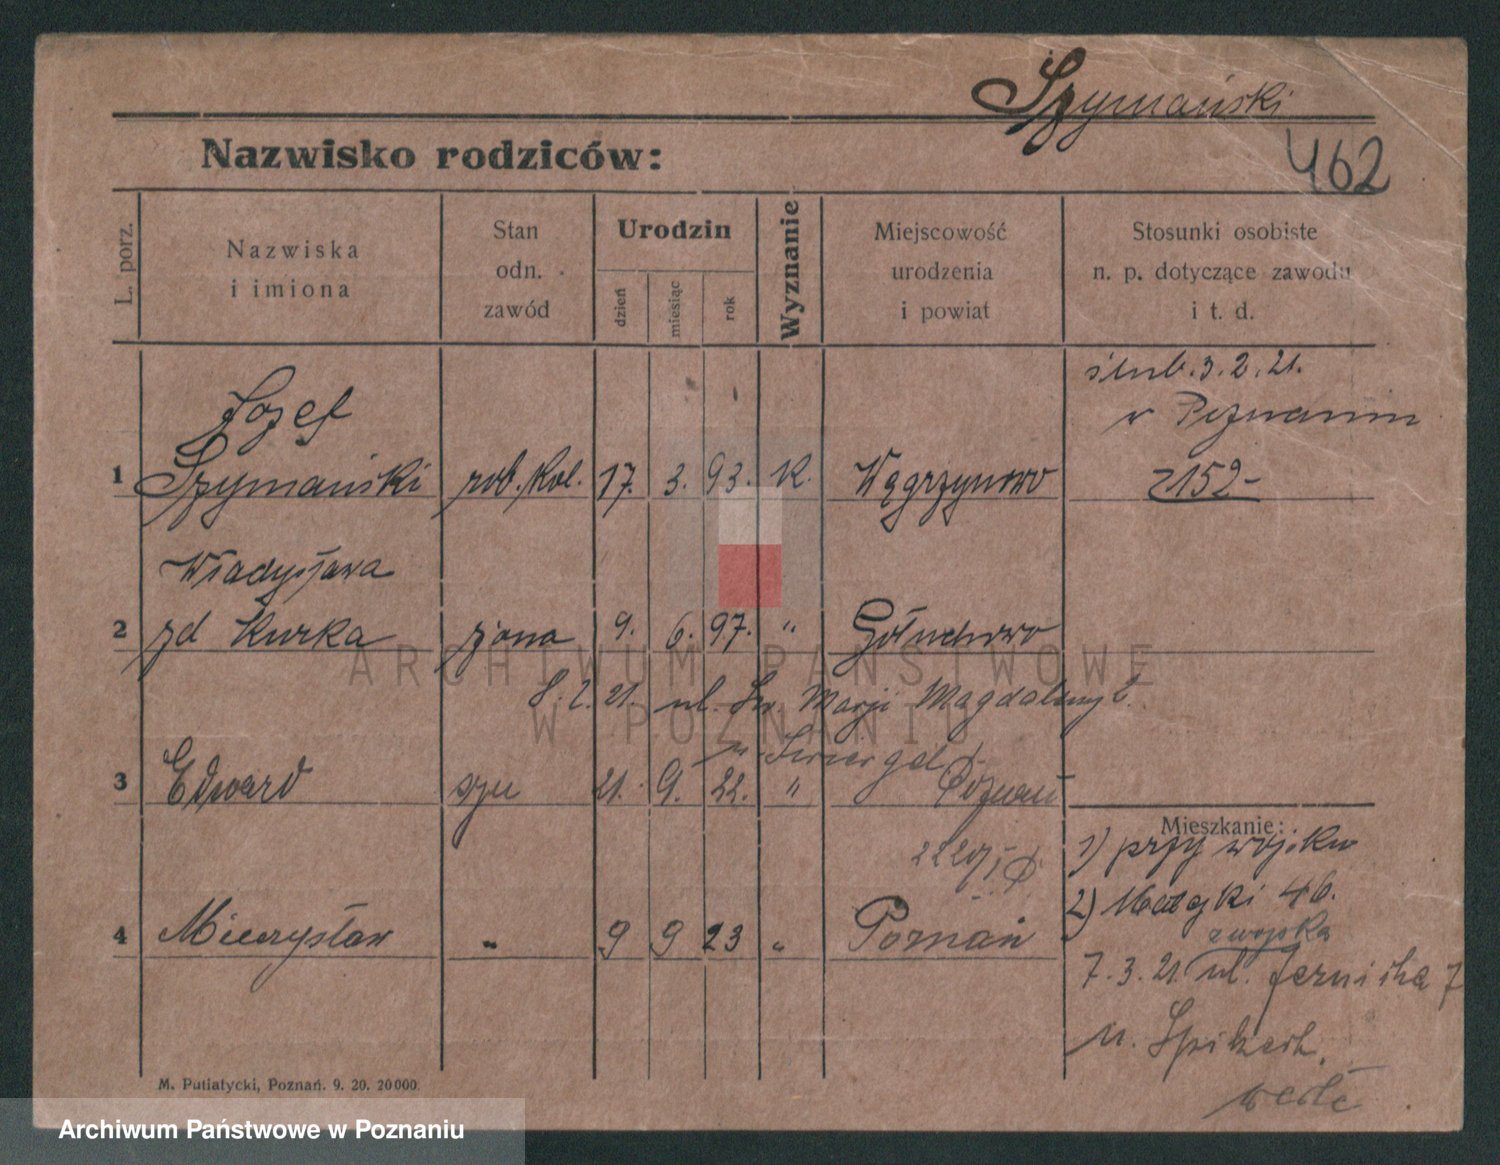 Szymański
Nazwisko rodziców:
462
L. porz.
Nazwiska
i imiona
Stan
odn.
zawód
Urodzin
dzień
miesiąc
rok
Wyznanie
Miejscowość
urodzenia
i powiat
Stosunki osobiste
n. p. dotyczące zawodu
i t. d.
ślub. 3. 2. 21.
w Poznaniu
Józef
1 Szymański rob. kol. 17. 3. 93. K. Wągrzynowo 2152-
Władysława
2 zd Kurka żona 9. 6. 97. " Gołuchowo
8. 2. 21. ul. Św Marji Magdaleny 6.
3 Edward syn 21. 9. 22. " Poznań
Mieszkanie:
1) przy wojsku
2) Matejki 46.
z wojska
4 Mieczysław " 9 9 23 " Poznań
7. 3. 21. ul.
M. Putiatycki, Poznań. 9. 20. 20000.
ARCHIWUM PAŃSTWOWE
W POZNANIU
Archiwum Państwowe w Poznaniu